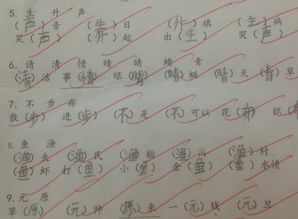 5. 生 升 声
(声)音 (生)日 (升)旗 (生)病
笑(声) (升)起 出(生) 笑(声)
6. 请 清 情 晴 睛 蜻 青
(清)洁 事(情) 眼(睛) (蜻)蜓 (晴)天 (青)草
7. 不 步 布
散(步) 进(步) (不)是 (不)可以 花(布)
8. 鱼 渔
(渔)去 (渔)民 (渔)船 (渔) (渔)村
(鱼)虾 打(鱼) 小(鱼) 金(鱼) (鱼)水情
9. 元 原
草(原) (元)帅 (原)来 一(元)钱 (元)旦